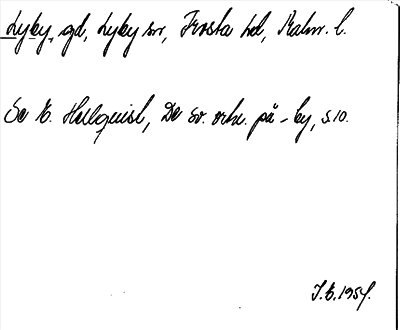 Lyby, gd, Lyby sn, Frosta hd, Malm. l.
Se E. Hellquist, De sv. ortn. på -by, s 10.
I.E. 1954.